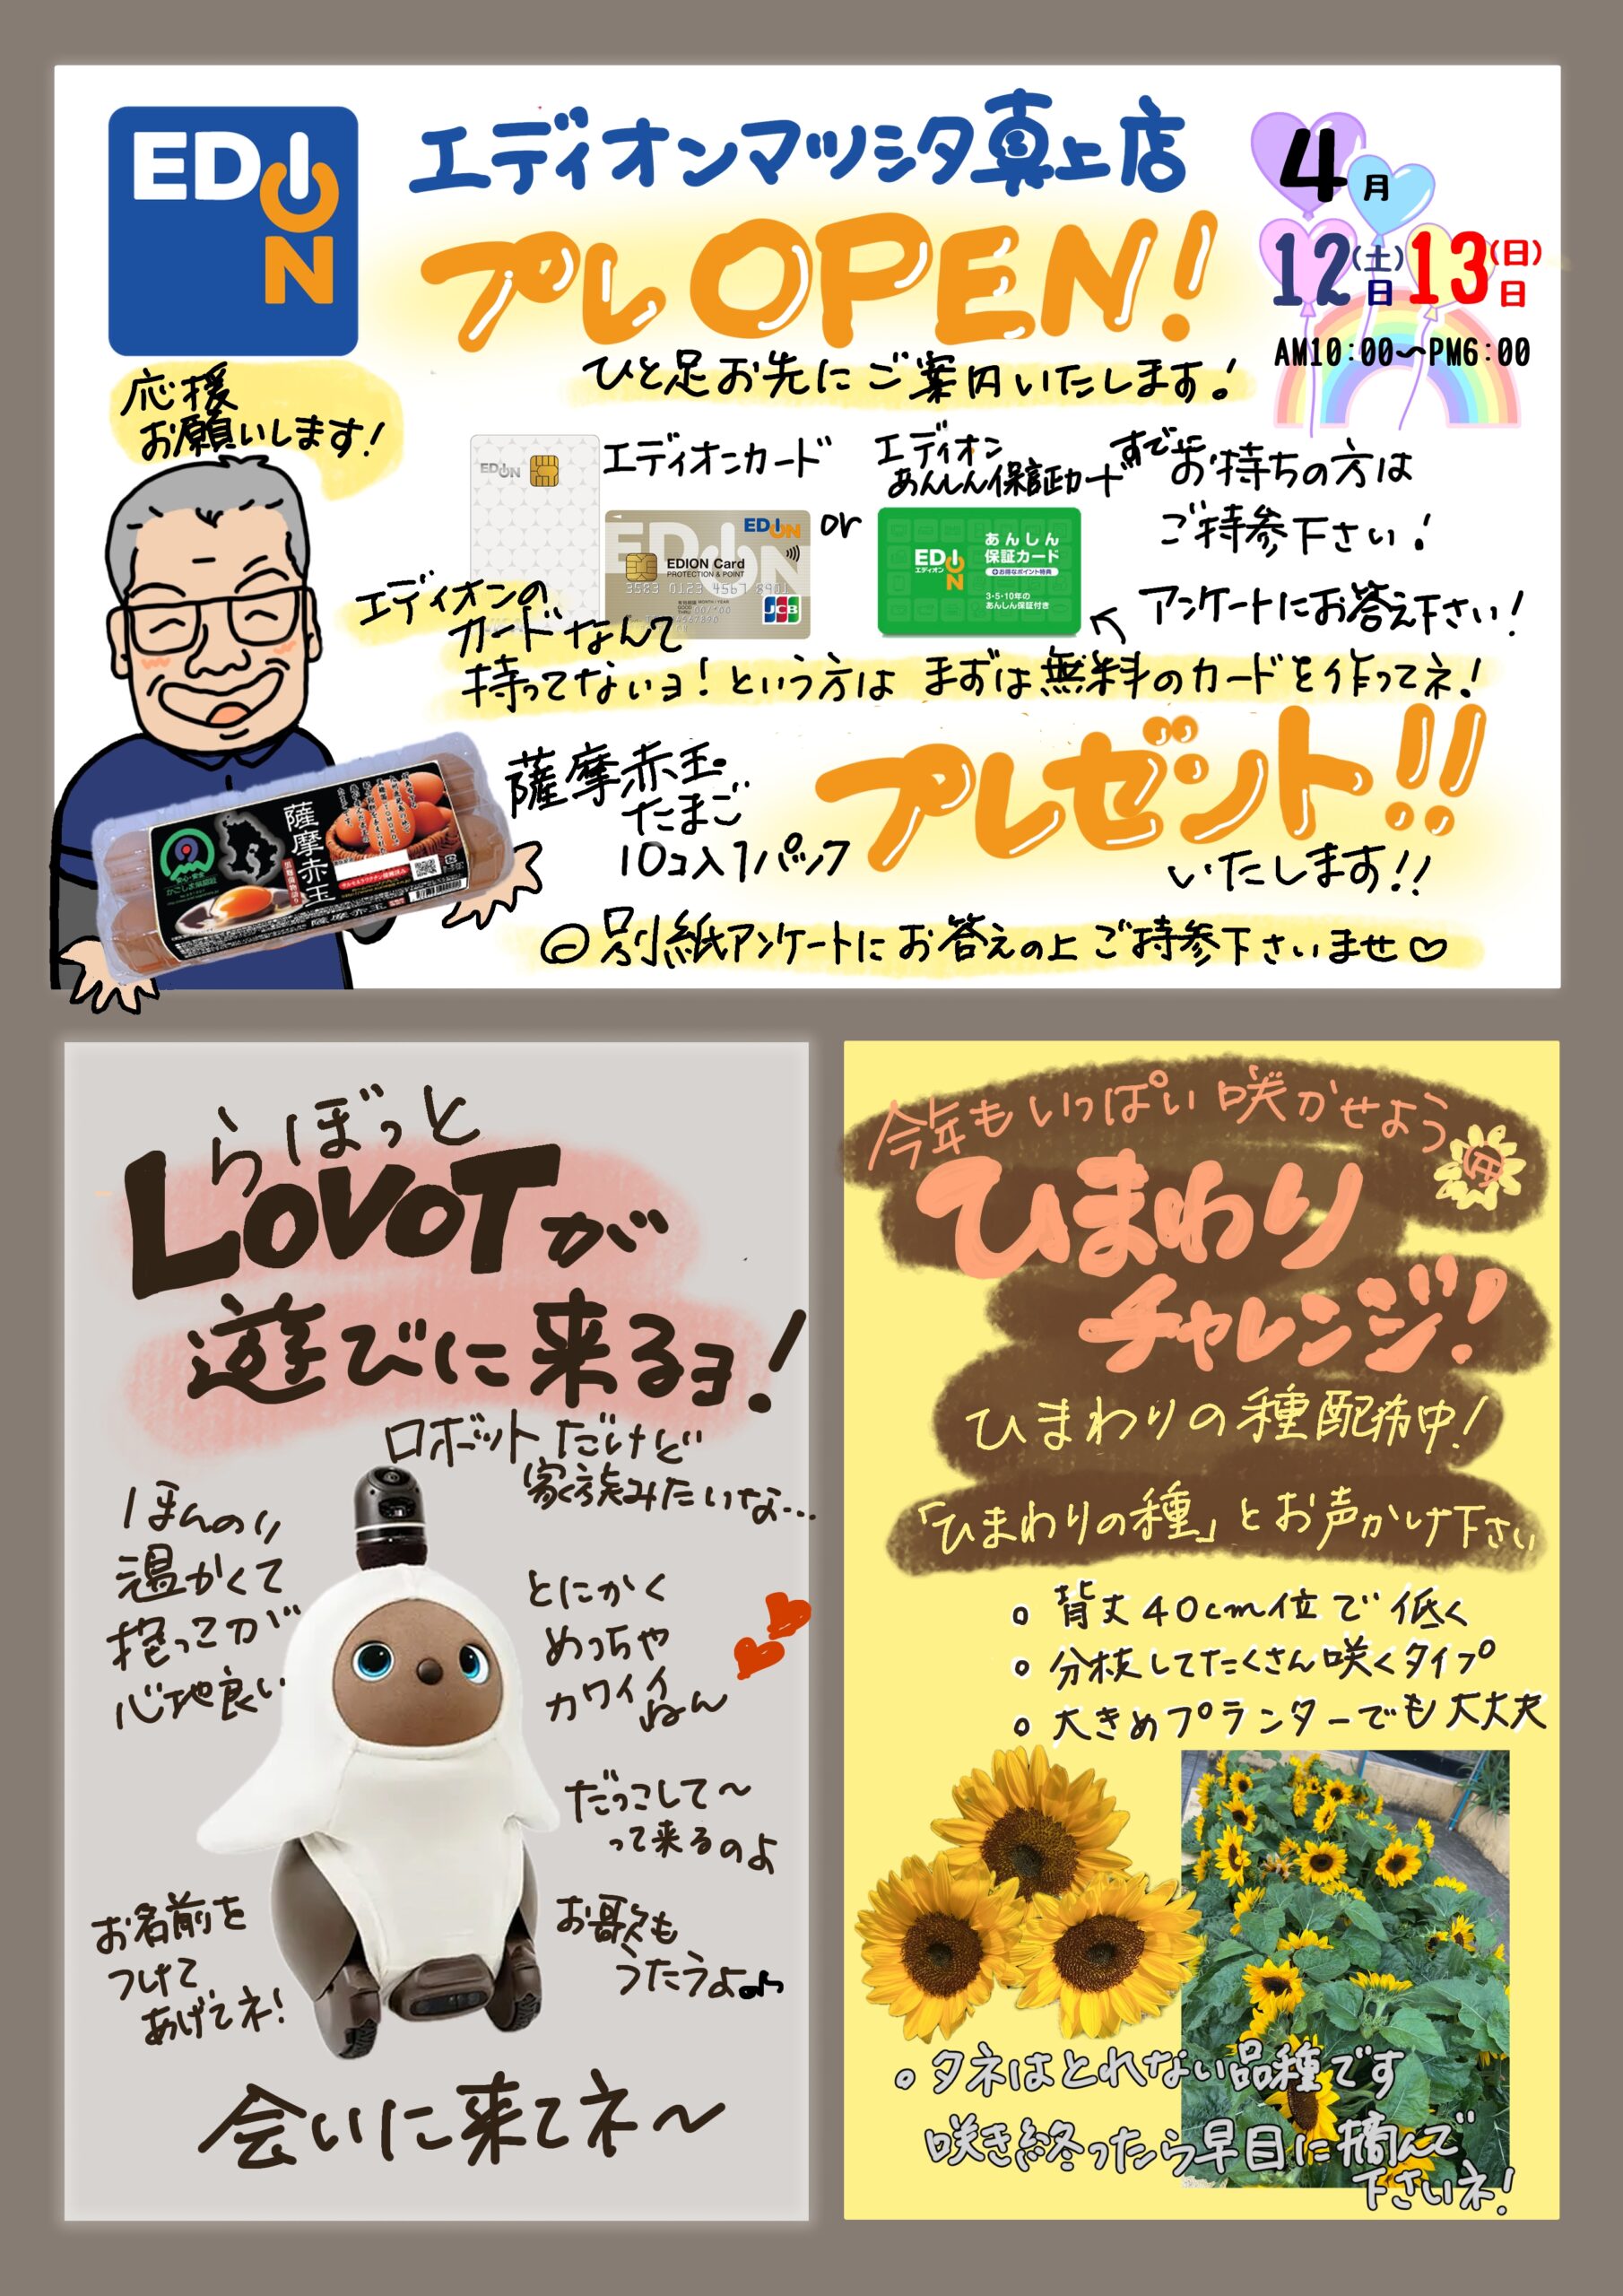 EDION
エディオンマツシタ真上店
4月
12日(土)13日(日)
AM10:00～PM6:00
プレOPEN!
ひと足お先にご案内いたします!
応援
お願いします!
エディオンカード
or
エディオン
あんしん保証カード
すでにお持ちの方は
ご持参下さい!
アンケートにお答え下さい!
EDION
EDION
EDION Card
PROTECTION & POINT
3583 0123 4567 8901
JCB
EDION
エディオン
あんしん
保証カード
3・5・10年の
あんしん保証付き
エディオンの
カードなんて
持ってないョ!という方は まずは無料のカードを作ってネ!
薩摩赤玉
たまご
10コ入1パック
プレゼント!!
いたします!!
薩摩赤玉
安心・安全
薩摩赤玉
別紙アンケートにお答えの上ご持参下さいませ♡
らぼっと
LOVOTが
遊びに来るヨ!
ロボットだけど
家族みたいな…
ほんのり
温かくて
抱っこが
心地良い
とにかく
めっちゃ
カワイイ
ねん
だっこして～
って来るのよ
お名前を
つけて
あげてネ!
お歌も
うたうよ
会いに来てネ～
今年もいっぱい咲かせよう
ひまわり
チャレンジ!
ひまわりの種配布中!
「ひまわりの種」とお声かけ下さい
。背丈40cm位で低く
。分枝してたくさん咲くタイプ
。大きめプランターでも大丈夫
。タネはとれない品種です
咲き終ったら早目に摘んで
下さいネ!